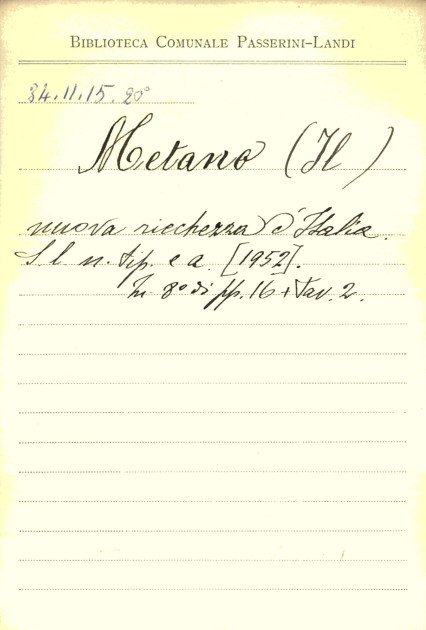 BIBLIOTECA COMUNALE PASSERINI-LANDI
34.11.15. 20°
Metano (Il)
nuova ricchezza d'Italia.
S. l. n. tip. e a. [1952].
In 8° di pp. 16 + Tav. 2.